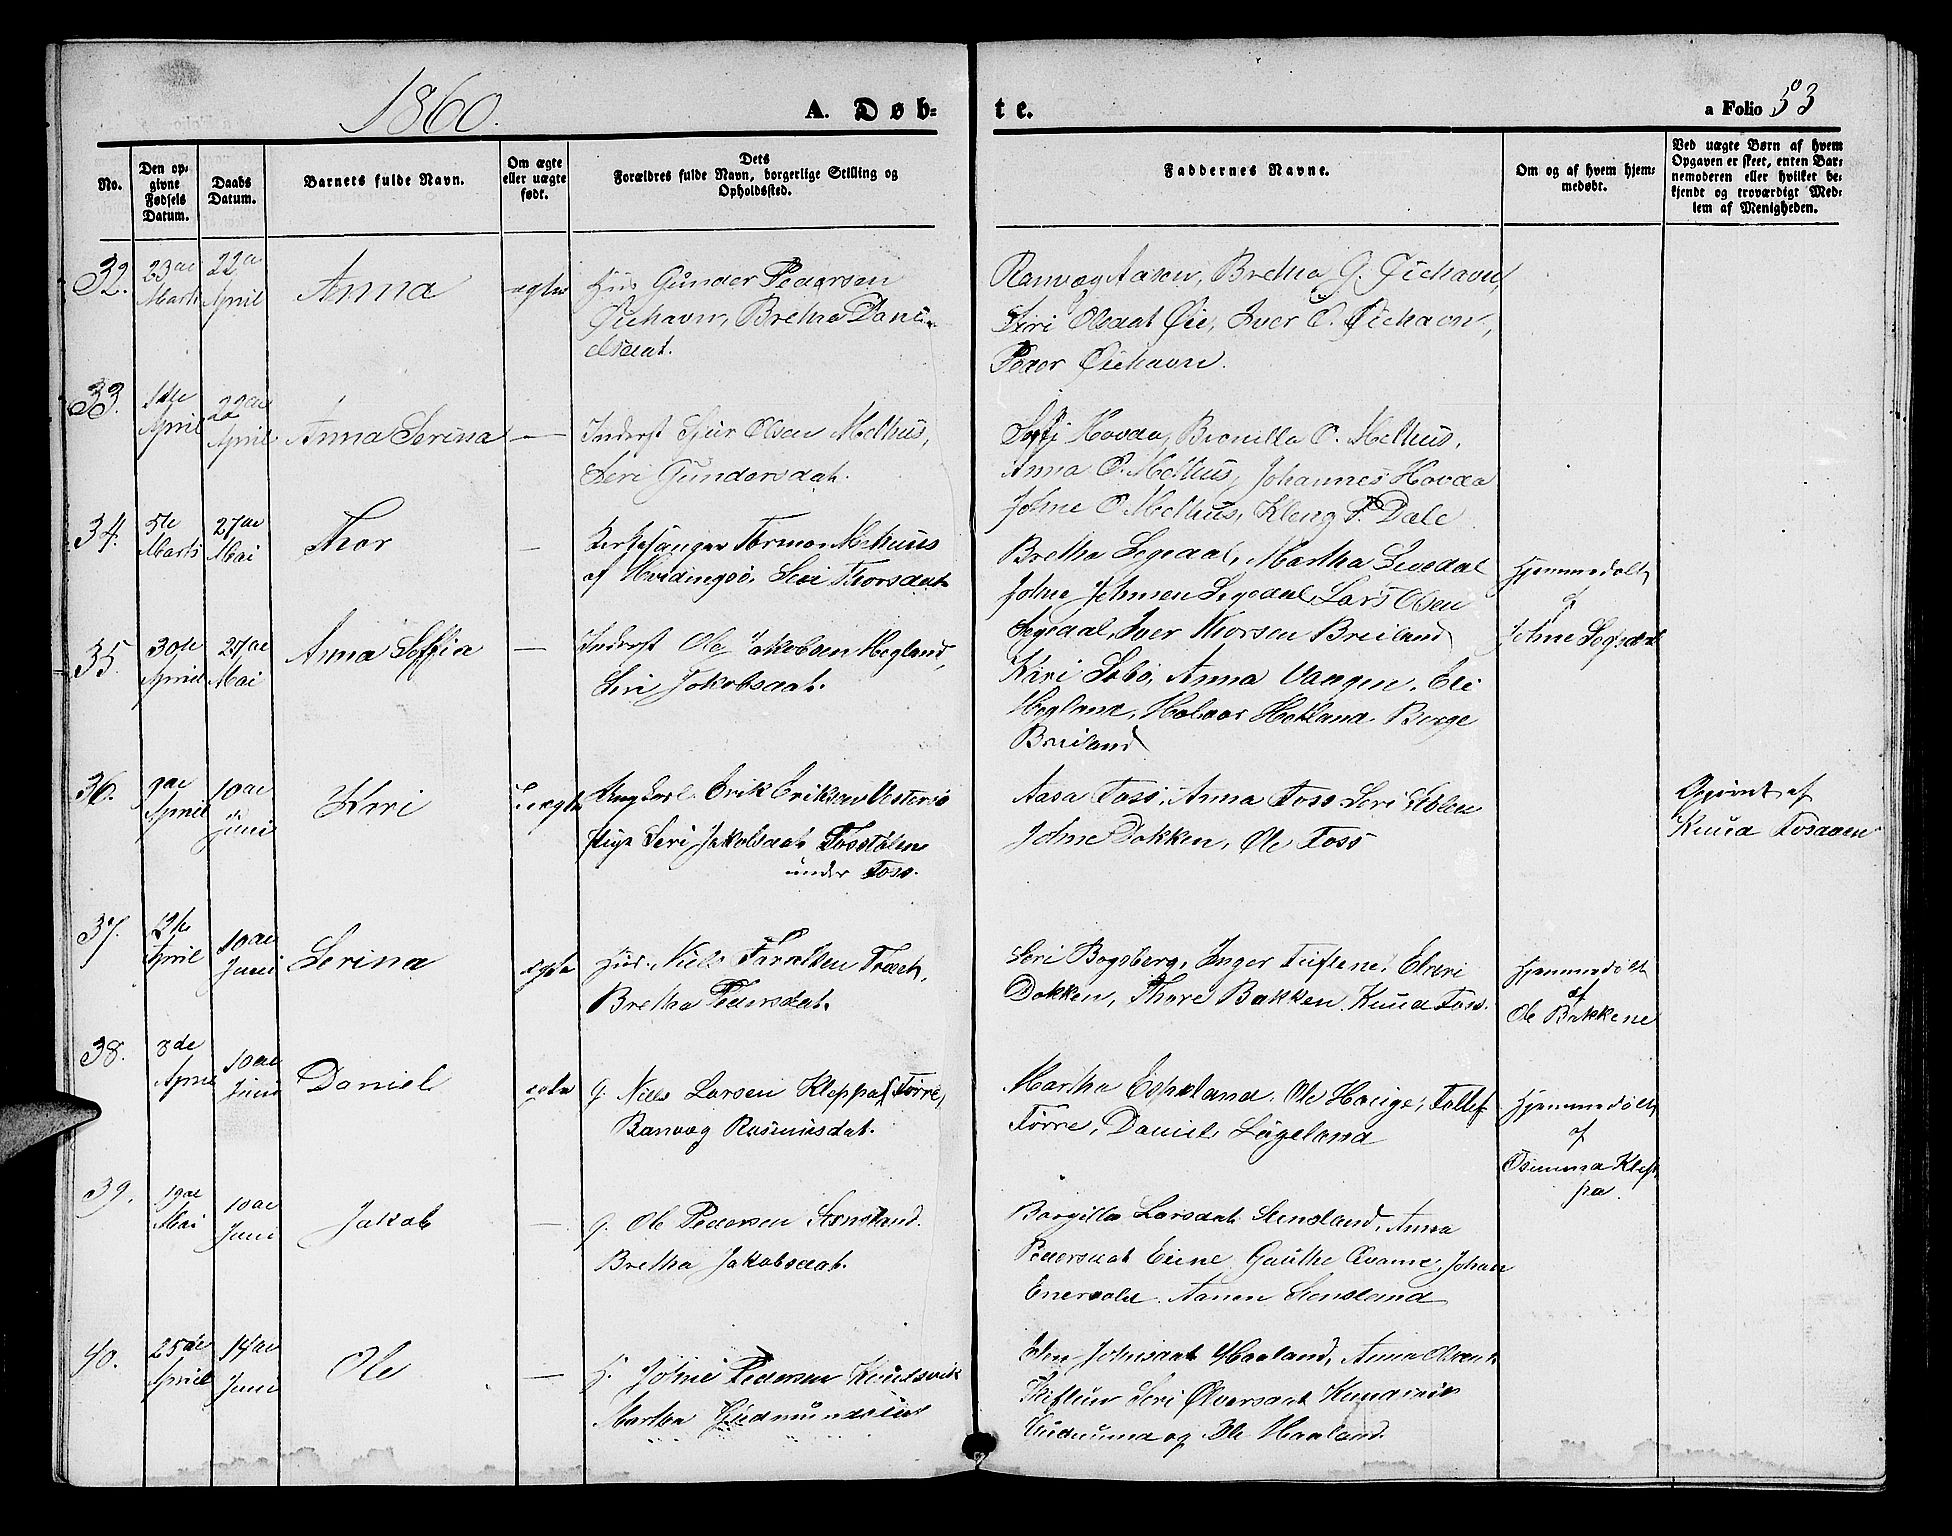 1860.
A. Døb-
te.
a Folio 53
No.
Den op-
givne
Fødsels
Datum.
Daabs
Datum.
Barnets fulde Navn.
Om ægte
eller uægte
født.
Dets
Forældres fulde Navn, borgerlige Stilling og
Opholdssted.
Faddernes Navne.
Om og af hvem hjem-
medøbt.
Ved uægte Børn af hvem
Opgaven er skeet, enten Bar-
nemoderen eller hvilket be-
kjendt og troværdigt Med-
lem af Menigheden.
32.
23de
Marts
22de
April
Anna
ægte
Gunder Pedersen
Øiehavn, Bretha Dani-
elsdat.
Bretha G. Øiehavn,
Siri Olsdat Øie, Iver O. Øiehavn,
Peder Øiehavn.
33.
1ste
April
22de
April
Anna Serina
—
Inderst Sjur Olsen Melhus,
Seri Gundersdat.
Hovda, Bronilla O. Melhus,
Anna O. Melhus, Johannes Hovda
Johne O. Melhus, Kleng P. Dale
34.
5te
Marts
27de
Mai
Thor
—
Kirkesanger Tormo Mehuus
af Hvidingsö, Seri Thorsdat
Bretha Segedal, Martha Segedal
Johne Johnsen Segedal, Lars Olsen
Segedal, Iver Thorsen Breiland
Hjemmedøbt
af
Johne Segedal
35.
30te
April
27de
Mai
Anna Soffia
—
Inderst Ole Jakobsen Hegland,
Seri Jakobsdat.
Kari Sebö, Anna Vangen, Eli
Hegland, Halvor Hetland. Borge
Breiland
36.
9de
April
10de
Juni
Kari
Uægte
Ungkarl Erik Eriksen Vesterö
Pige Seri Jakobsdat. Fosstölen
under Foss.
Aasa Foss, Anna Foss Seri Stölen
Johne Dokken, Ole Foss
Opgivet af
Knud Fosaaen
37.
12te
April
10de
Juni
Serina
ægte
Niels
Bretha Pedersdat.
Seri Bogsberg, Inger Tuftene,
Dokken, Thore Bakken. Knud Foss.
Hjemmedøbt
af
Ole Bakkene
38.
3de
April
10de
Juni
Daniel
ægte
G. Niels Larsen Kleppa, Tørre,
Ranvæg Rasmusdat.
Martha Espeland, Ole Hauge, Tollef
Tørre, Daniel Lageland
Hjemmedøbt
af
Osmund Klep-
pa.
39.
19de
Mai
10de
Juni
Jakob
—
G. Ole Pedersen Stensland.
Bretha Jakobsdat.
Borgilla Larsdat Stensland, Anna
Pedersdat Eiene, Gauthe Qvame, Johan
Enervold. Aanen Stensland
40.
25de
April
14de
Juni
Ole
—
H. Johne Pedersen Knudsvik
Martha Gudmundsdat
Johnsdat Haaland, Anna Olsdat
Skiftun Seri Ølversdat Knudsvik
Gudmund og Ole Haaland.